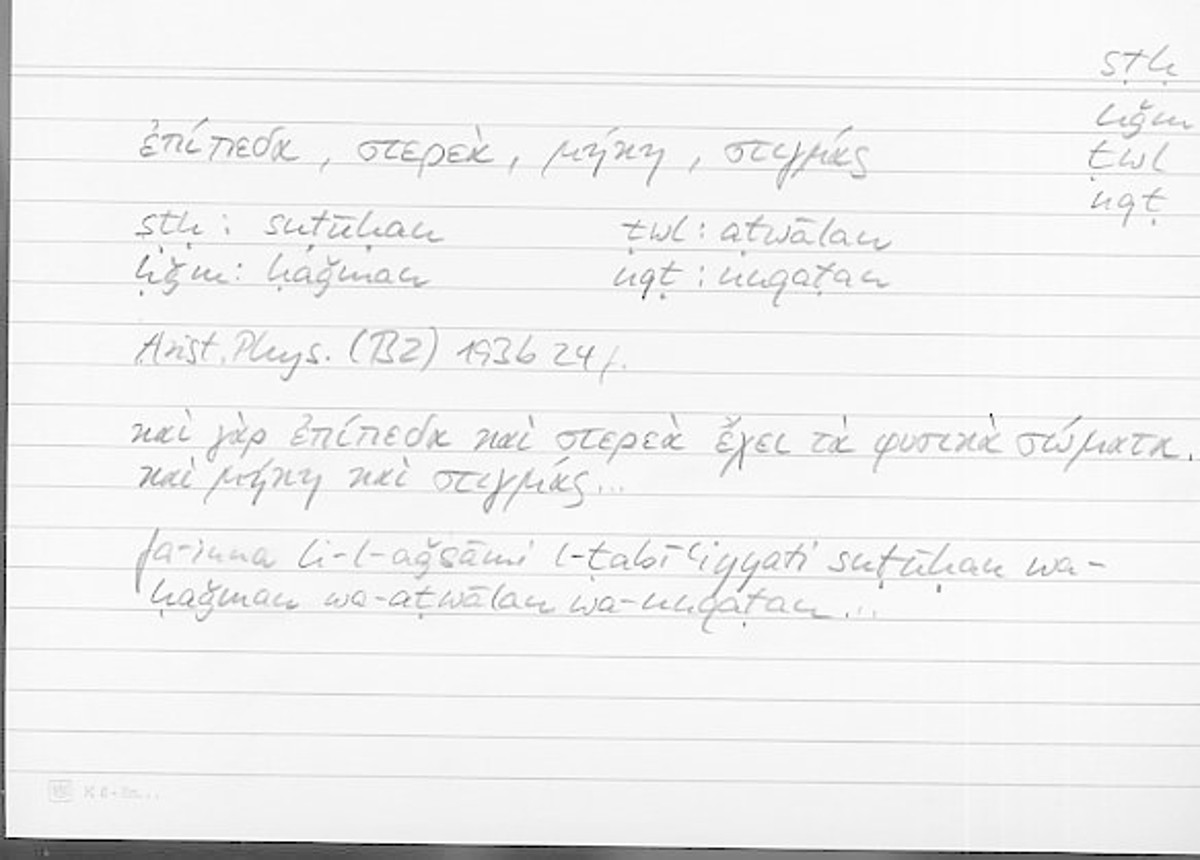 sṭḥ
ḥǧm
ṭwl
nqṭ
ἐπίπεδα, στερεὰ, μήκη, στιγμάς
sṭḥ: suṭūḥan ṭwl: aṭwālan
ḥǧm: ḥaǧman nqṭ: nuqaṭan
Arist. Phys. (B2) 193b 24f.
καὶ γὰρ ἐπίπεδα καὶ στερεὰ ἔχει τὰ φυσικὰ σώματα.
καὶ μήκη καὶ στιγμάς...
fa-inna li-l-aǧsāmi l-ṭabīʿiyyati suṭūḥan wa-
ḥaǧman wa-aṭwālan wa-nuqaṭan...